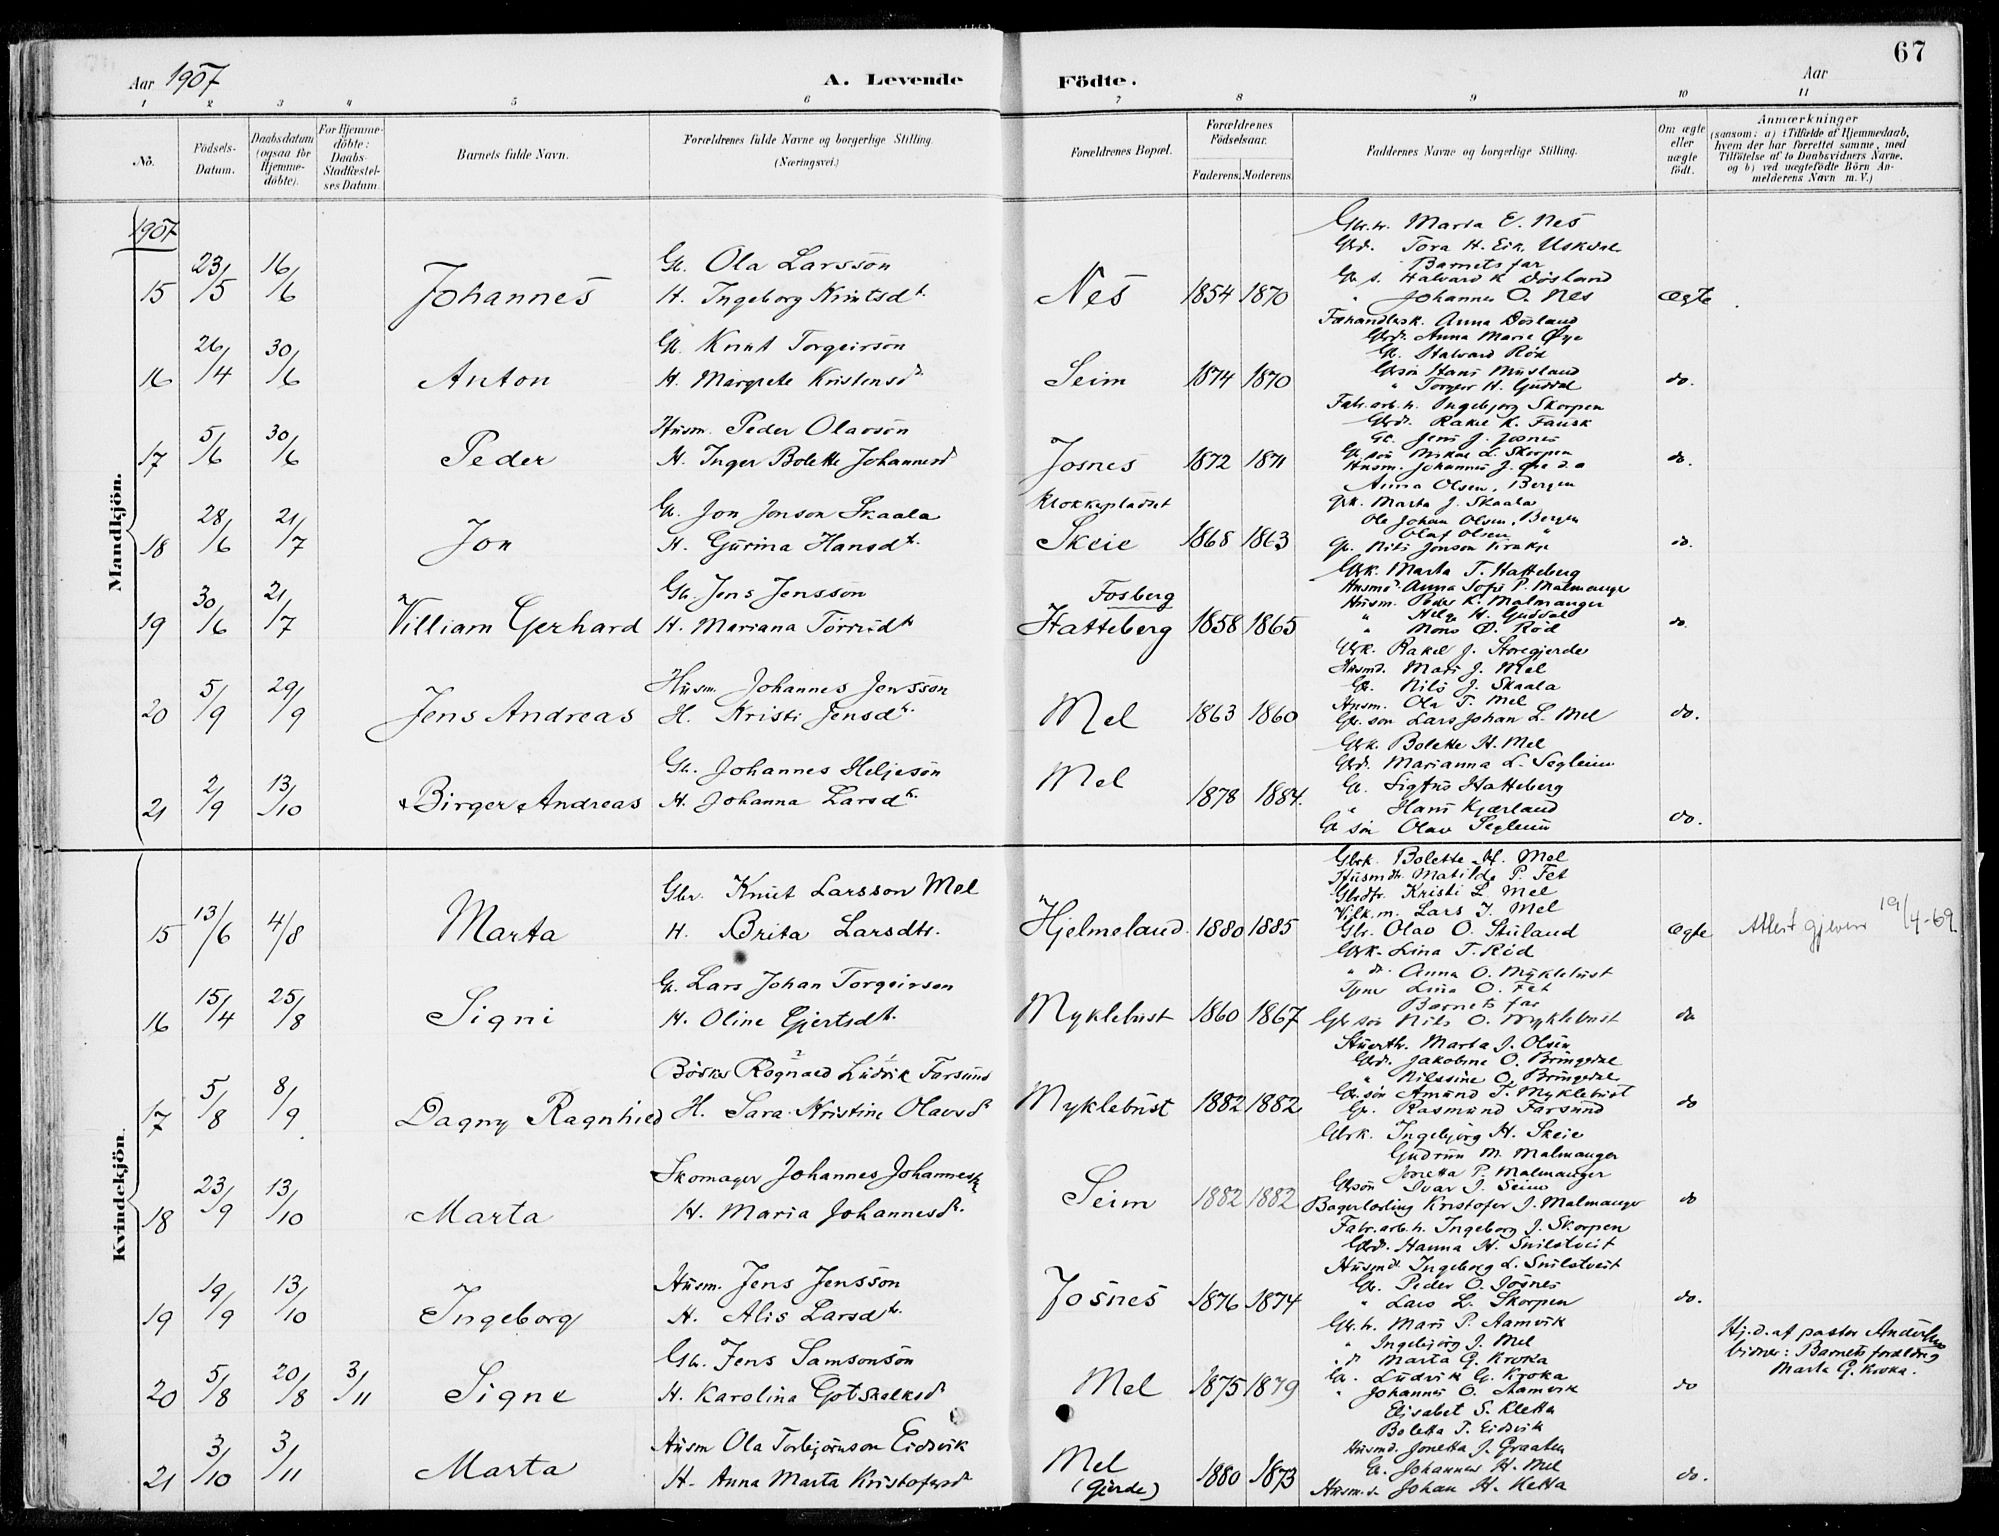 67
Aar 1907
A. Levende Födte.
Aar
1 2 3 4 5 6 7 8 9 10 11
No.
Födsels-Datum.
Daabsdatum (ogsaa for Hjemme-döbte).
For Hjemme-döbte: Daabs-Stadfæstel-ses Datum.
Barnets fulde Navn.
Forældrenes fulde Navne og borgerlige Stilling. (Næringsvei.)
Forældrenes Bopæl.
Forældrenes Födselsaar.
Faderens. Moderens.
Faddernes Navne og borgerlige Stilling.
Om ægte eller uægte födt.
Anmærkninger
(saasom: a) i Tilfælde af Hjemmedaab, hvem der har forrettet samme, med Tilföielse af to Daabsvidners Navne, og b) ved uægtefödte Börn Anmelderens Navn m. V.)
Mandkjön.
1907
15 23/5 16/6 Johannes
G. Ola Larsson
H. Ingeborg Knutsdt.
Nes 1854 1870
Gbr.h. Marta E. Nes
Gbrd. Tora H. Eik Uskedal
Barnets far
G. s. Halvard K. Døsland
" Johannes O. Nes
Ægte
16 26/4 30/6 Anton
G. Knut Torgeirson
H. Margrete Kristensd.
Seim 1874 1870
Fæhandlersk. Anna Døsland
Gbrd. Anna Marie Øye
G. Halvard Röd
Gbrsön Hans Musland
" Torgeir H. Guddal
do.
17 5/6 30/6 Peder
Husm. Peder Olavson
H. Inger Bolette Johannesd
Josnes 1872 1871
Fabr.arb.h. Ingebjorg Skorpen
Gbrd. Rakel K. Fausk
G. Jens J. Josnes
G. sön Mikal L. Skorpen
Husm. Johannes J. Øie
do.
18 28/6 21/7 Jon
G. Jon Jonson Skaala
H. Gurina Hansdt.
Klokkepladset
Skeie 1868 1863
Anna Olsen, Bergen
Gbrk. Marta J. Skaala
Ole Johan Olsen, Bergen
Olaf Olsen "
G. Nils Jonson
do.
19 30/6 21/7 William Gerhard
Gb. Jens Jensson
H. Mariana Torrisdt
Fosberg
Hatteberg 1858 1865
Gbrk. Marta T. Hatteberg
Husmd. Anna Sofie P. Malmanger
Husm. Peder K. Malmanger
" Helge H. Guddal
" Mons Ø. Röd
do.
20 5/9 29/9 Jens Andreas
Husm. Johannes Jensson
H. Kristi Jensdt.
Mel 1863 1860
Gbrk. Rakel J. Storegjerde
Husmd. Mari J. Mel
G. Nils J. Skaala
Husm. Ola T. Mel
Gbr. sön Lars Johan L. Mel
do.
21 2/9 13/10 Birger Andreas
Gb. Johannes Heljeson
H. Johanna Larsdt.
Mel 1878 1884.
Gbrk. Bolette H. Mel
Gbrd. Marianna L. Seglem
G. Sigtus Hatteberg
" Hans Kjærland
G sön Olav Seglem
do.
Kvindekjön.
15 13/6 4/8 Marta
Gbr. Knut Larsson Mel
H. Brita Larsdtr.
Hjelmeland 1880 1885
Gbrk. Bolette H. Mel
Husmdtr. Matilde P. Fet
Gbrdtr. Kristi L Mel
Lars J. Mel
Gbr. Olav O. Skuland
Ægte
Attest gjeven 19/4-69.
16 15/4 25/8 Signi
G. Lars Johan Torgeirson
H. Oline Gjertsdt.
Myklebust 1860 1867
Gbrk. Lina T. Röd
" d. Anna O. Myklebust
Tjene Lina O. Fet
Barnets far
Gbr sön Nils O. Myklebust
do
17 5/8 8/9 Dagny Ragnhild
Bödker Rognald Ludvik Farsund
H. Sara Kristine Olavsd
Myklebust 1882 1882
Marta J. Olsen
Gbrd. Jakobine O. Bringedal
" Nilssine O. Bringedal
Gbr. sön Amund T. Myklebust
G. Rasmund Farsund
do
18 23/9 13/10 Marta
Skomager Johannes Johannesson
H. Maria Johannesdt.
Seim 1882 1882
Gbrk. Ingebjörg H. Skeie
Gudrun M. Malmanger
Jonetta P. Malmanger
Gbrsön Ivar J. Seim
Bagerlærling Kristofer J. Malmanger
do
19 19/9 13/10 Ingeborg
Husm. Jens Jensson
H. Alis Larsdt.
Josnes 1876 1874
Fabr.arb.h. Ingeborg J. Skorpen
Gbrd. Hanna H. Snilstveit
Husmd. Ingeborg L. Snilstveit
G. Peder O. Josnes
" Lars L. Skorpen
do.
20 5/8 20/8 3/11 Signe
Gb. Jens Samsonson
H. Karolina Gotskalksd
Mel 1875 1879
Gbr.h. Mari P. Aamvik
" Ingebjörg J. Mel
" d. Marta G. Kroka
G. Ludvik G. Kroka
" Johannes O. Aamvik
do
Hj.d. af pastor Andersen
Vidner: Barnets forældre
Marta G. Kroka.
21 3/10 3/11 Marta
Husm Ola Torbjörnson Eidsvik
H. Anna Marta Kristofersd
Mel
(Gjerde) 1880 1873
Elisabet S. Kletta
Boletta T. Eidsvik
Husmd. Jonetta J. Graaten
G. Johannes H. Mel
Husm.s. Johan H. Kletta
do.